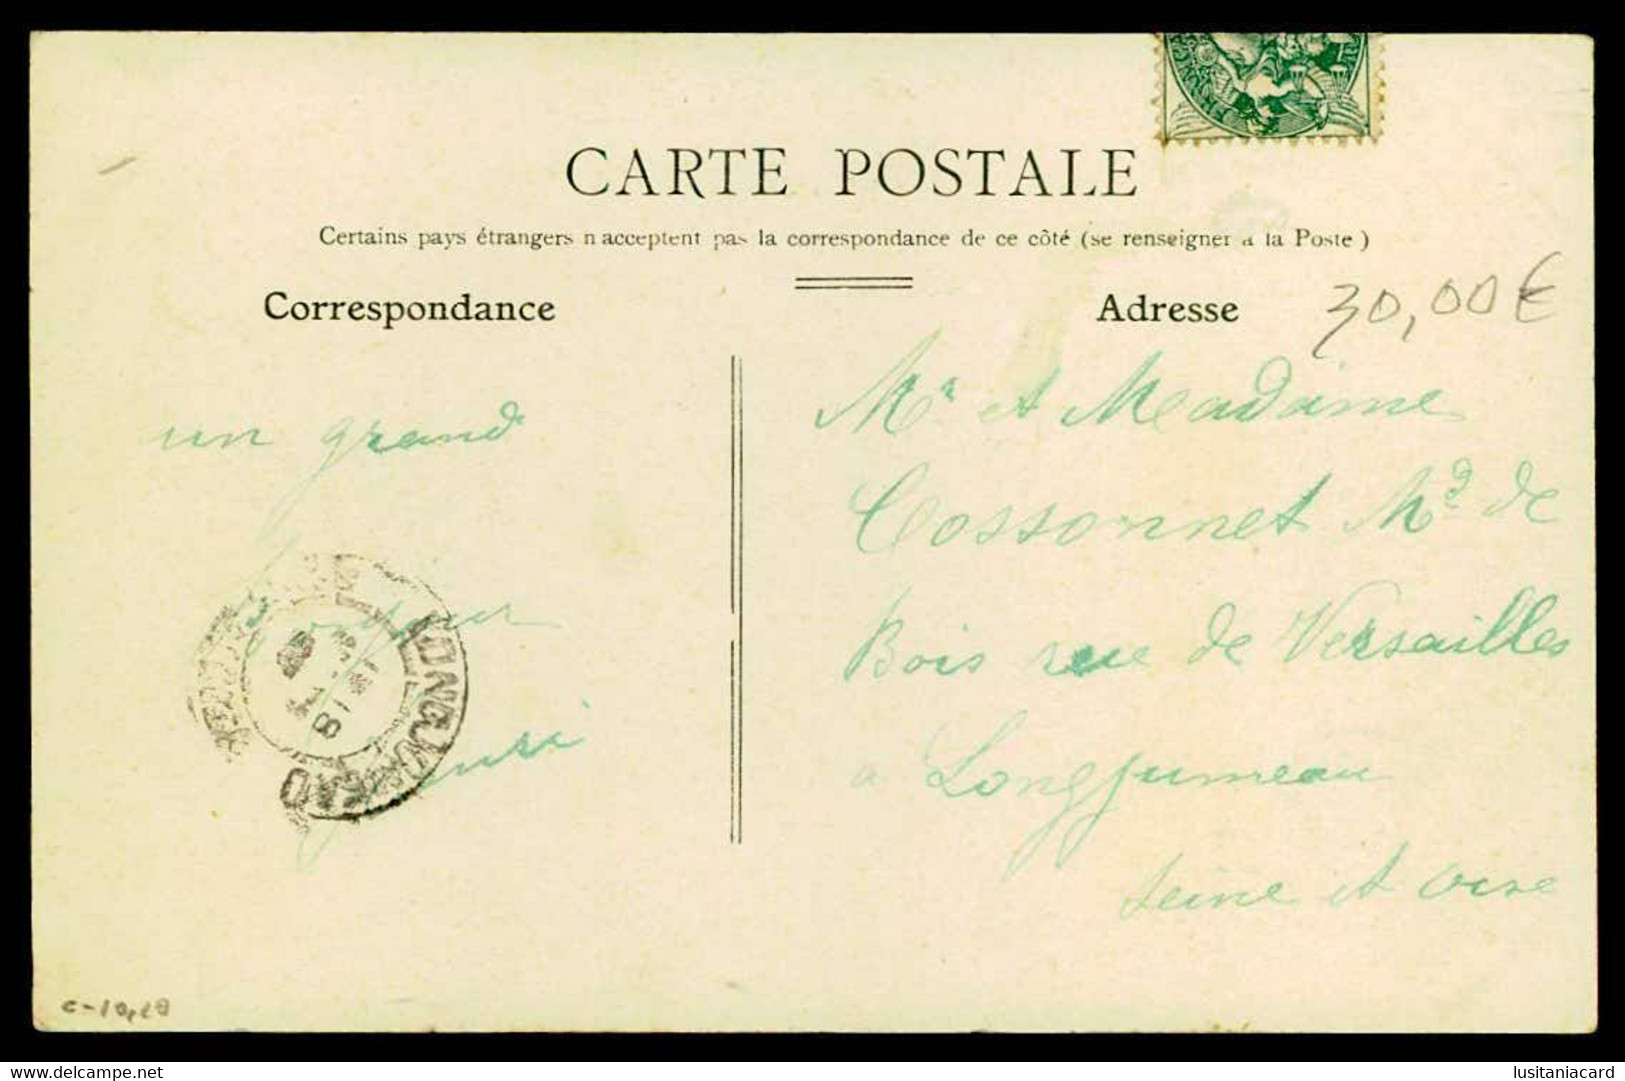 CARTE POSTALE
Certains pays étrangers n acceptent pas la correspondance de ce côté (se renseigner à la Poste)
Correspondance
Adresse
30,00€
un grand
bonjour
Mr et Madame
Cossonnet Md de
Bois rue de Versailles
a Longjumeau
Seine et Oise
LONGJUMEAU
Delcampe.net
lusitaniacard